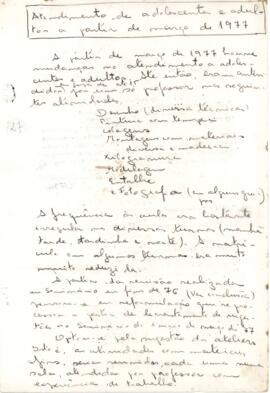 Atendimento de adolescentes e adul-
tos a partir de março de 1977
A partir de março de 1977 houve
mudanças no atendimento a adoles-
centes e adultos. Até então, eram aten-
didos por um só professor nas seguin-
tes atividades:
Desenho (diversas técnicas)
Pintura com tempera
colagens
Montagem com materiais
diversos e madeira
Xilogravura
Modelagem
Entalhe
e Fotografia (em alguns gru-
pos
A frequência às aulas era bastante
irregular nos diversos turnos (manhã
tarde, tardinha e noite). A matrí-
cula em alguns turnos era muito
muito reduzida.
A partir da revisão realizada
no Seminário de fins de 76 (Ver
) e na reformulação que se
processou a partir de levantamento de suges-
tões no Seminário de março de 77
Optou-se pela sugestão de ateliers
Isto é, as atividades com materiais
afins, seriam reunidas, cada uma numa
sala, atendida por professor com
experiência de trabalho.